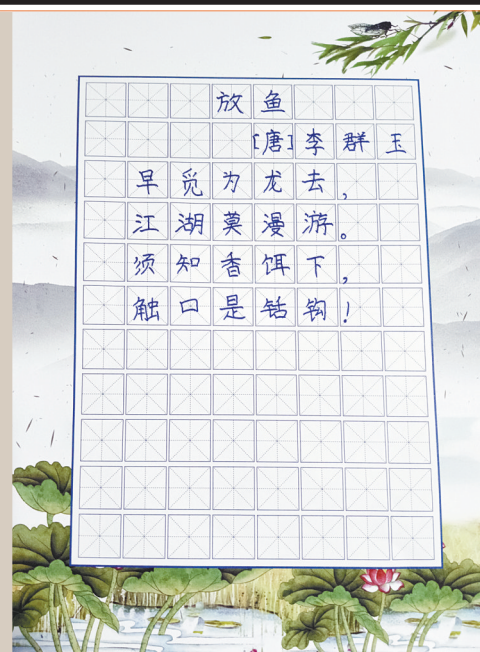 放鱼
[唐]李群玉
早觅为龙去，
江湖莫漫游。
须知香饵下，
触口是铦钩！